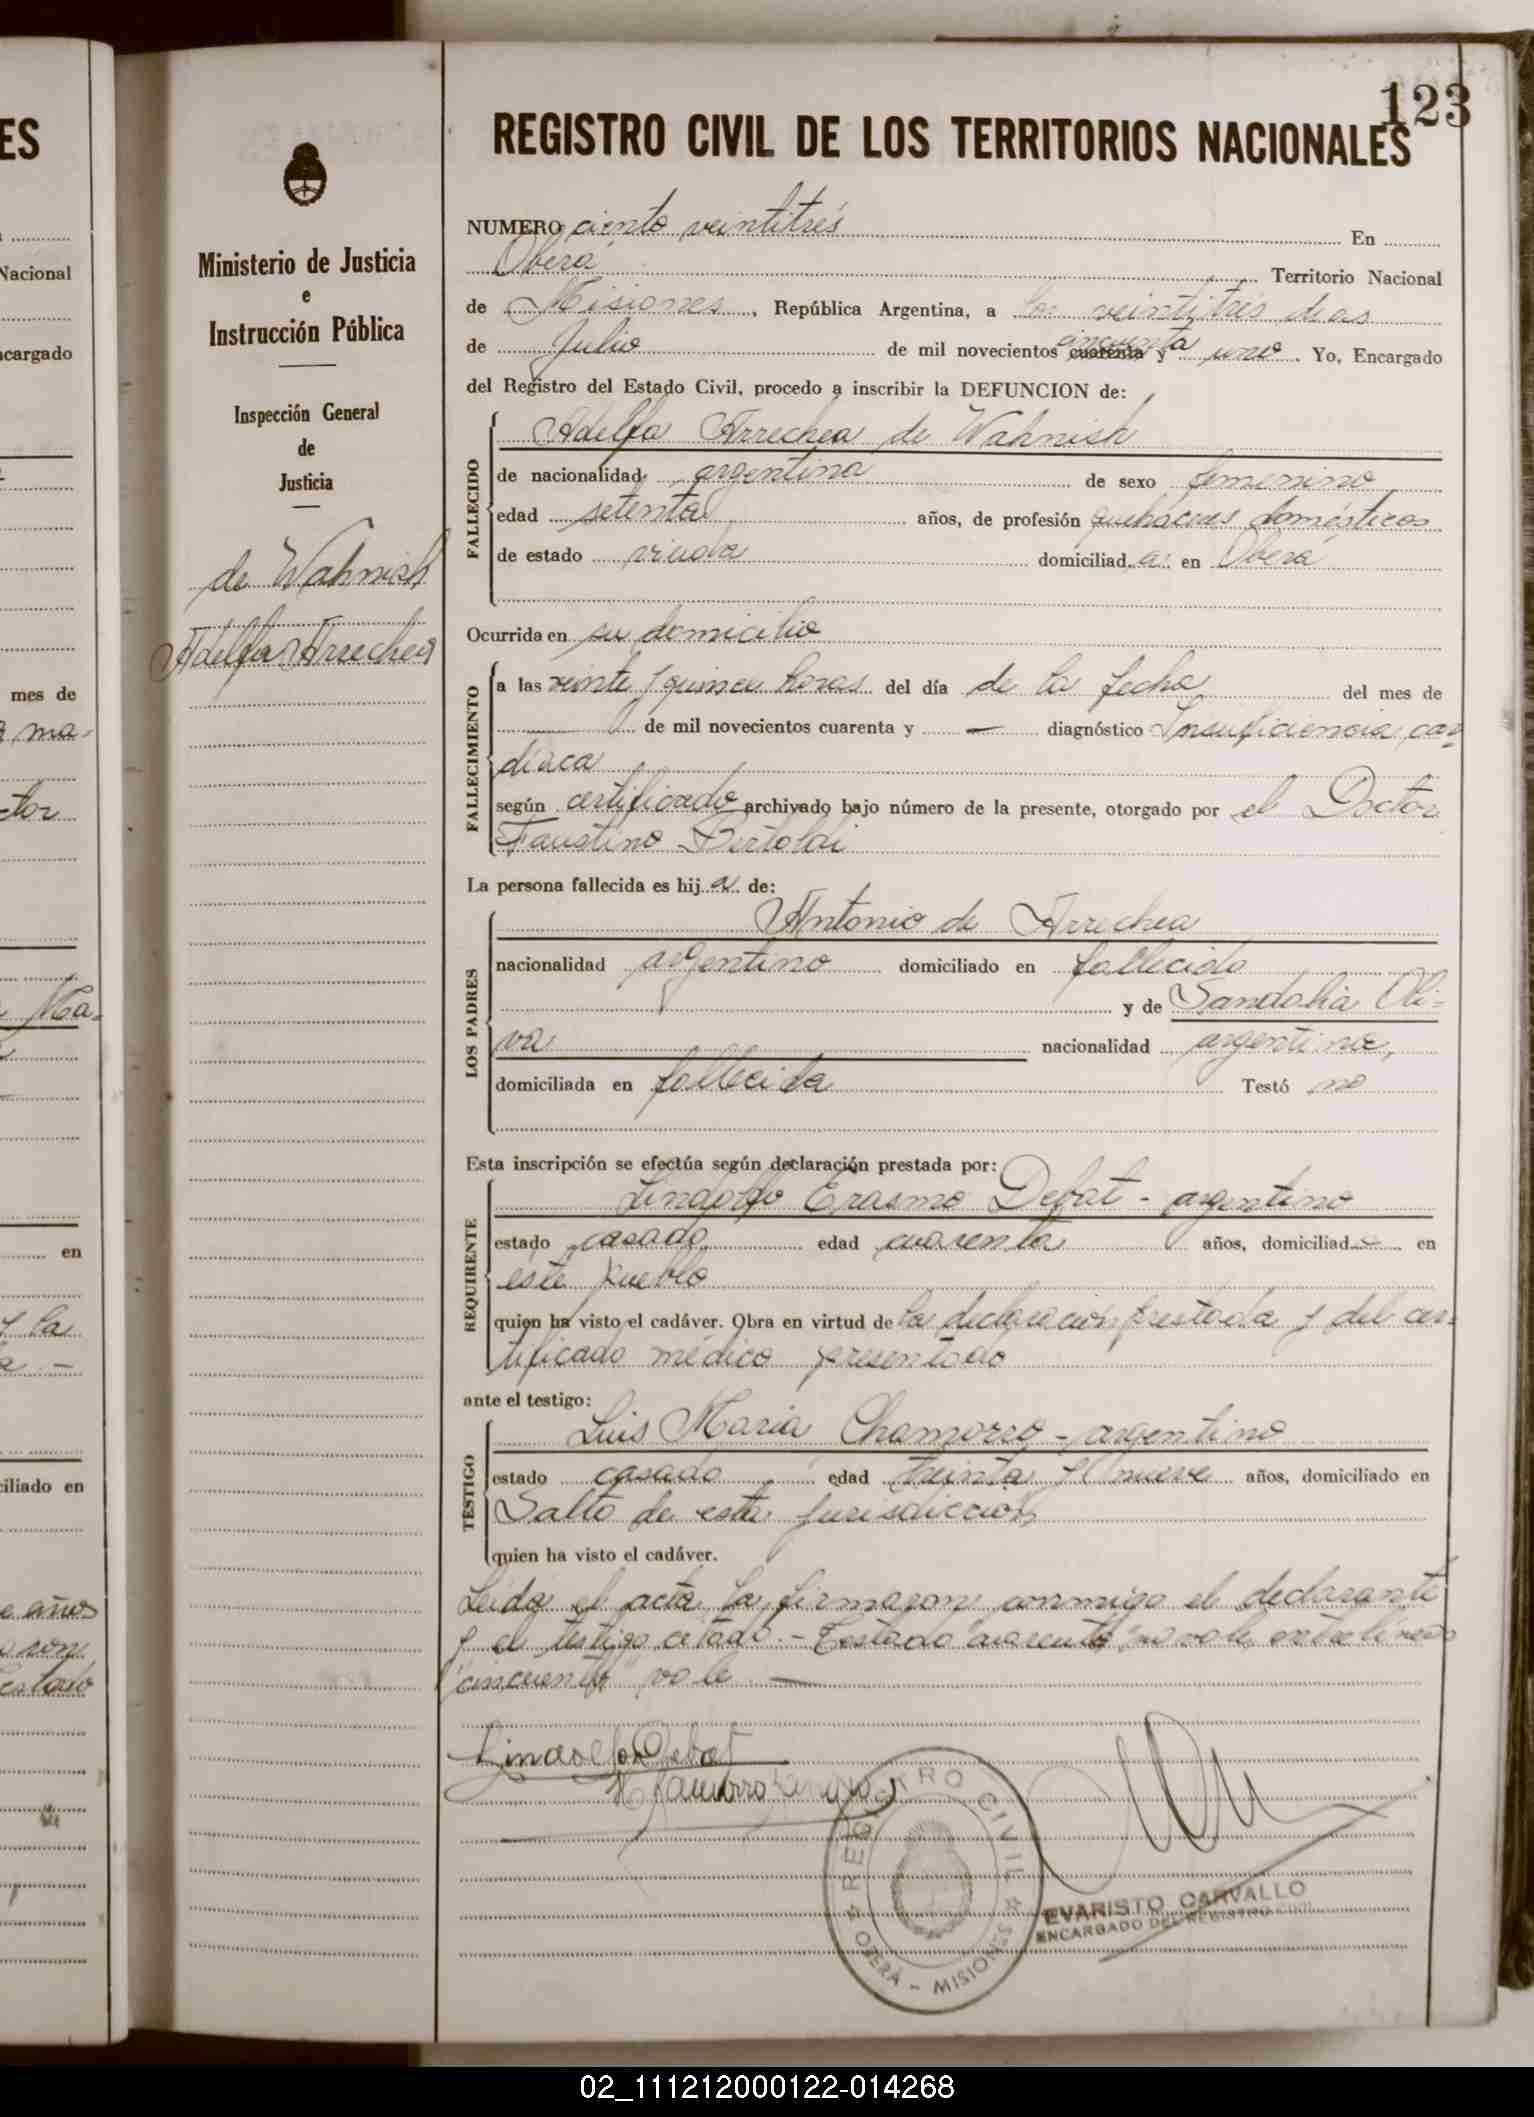 123
REGISTRO CIVIL DE LOS TERRITORIOS NACIONALES
Ministerio de Justicia
e
Instrucción Pública
Inspección General
de
Justicia
de Wahnish
Adelfa Arrechea
NUMERO ciento veintitrés En
Oberá Territorio Nacional
de Misiones, República Argentina, a los veintitres dias
de Julio de mil novecientos cuarenta cincuenta y uno. Yo, Encargado
del Registro del Estado Civil, procedo a inscribir la DEFUNCION de:
FALLECIDO
Adelfa Arrechea de Wahnish
de nacionalidad argentina de sexo femenino
edad setenta años, de profesión quehaceres domésticos
de estado viuda domiciliad a en Oberá
Ocurrida en su domicilio
FALLECIMIENTO
a las veinte y quince horas del día de la fecha del mes de
de mil novecientos cuarenta y — diagnóstico Insuficiencia car-
diaca
según certificado archivado bajo número de la presente, otorgado por el Doctor
Faustino Bertoldi
La persona fallecida es hij a de:
LOS PADRES
Antonio de Arrechea
nacionalidad argentino domiciliado en fallecido
y de Sandalia Oli-
va nacionalidad argentina,
domiciliada en fallecida Testó no
Esta inscripción se efectúa según declaración prestada por:
REQUIRENTE
Lindolfo Erasmo Debat - argentino
estado casado edad cuarenta años, domiciliad o en
este pueblo
quien ha visto el cadáver. Obra en virtud de la declaración prestada y del cer-
tificado médico presentado
ante el testigo:
TESTIGO
Luis Maria Chamorro - argentino
estado casado edad treinta y nueve años, domiciliado en
Salto de esta jurisdiccion
quien ha visto el cadáver.
Leida el acta la firmaron conmigo el declarante
y el testigo citado. - Testado "cuarenta" no vale, entre lineas
"cincuenta" vale —
Lindolfo Debat
REGISTRO CIVIL
OBERÁ - MISIONES
EVARISTO CARVALLO
ENCARGADO DEL REGISTRO CIVIL
ES
Nacional
encargado
mes de
ma-
ctor
Ma-
en
y la
ciliado en
e años
02_111212000122-014268